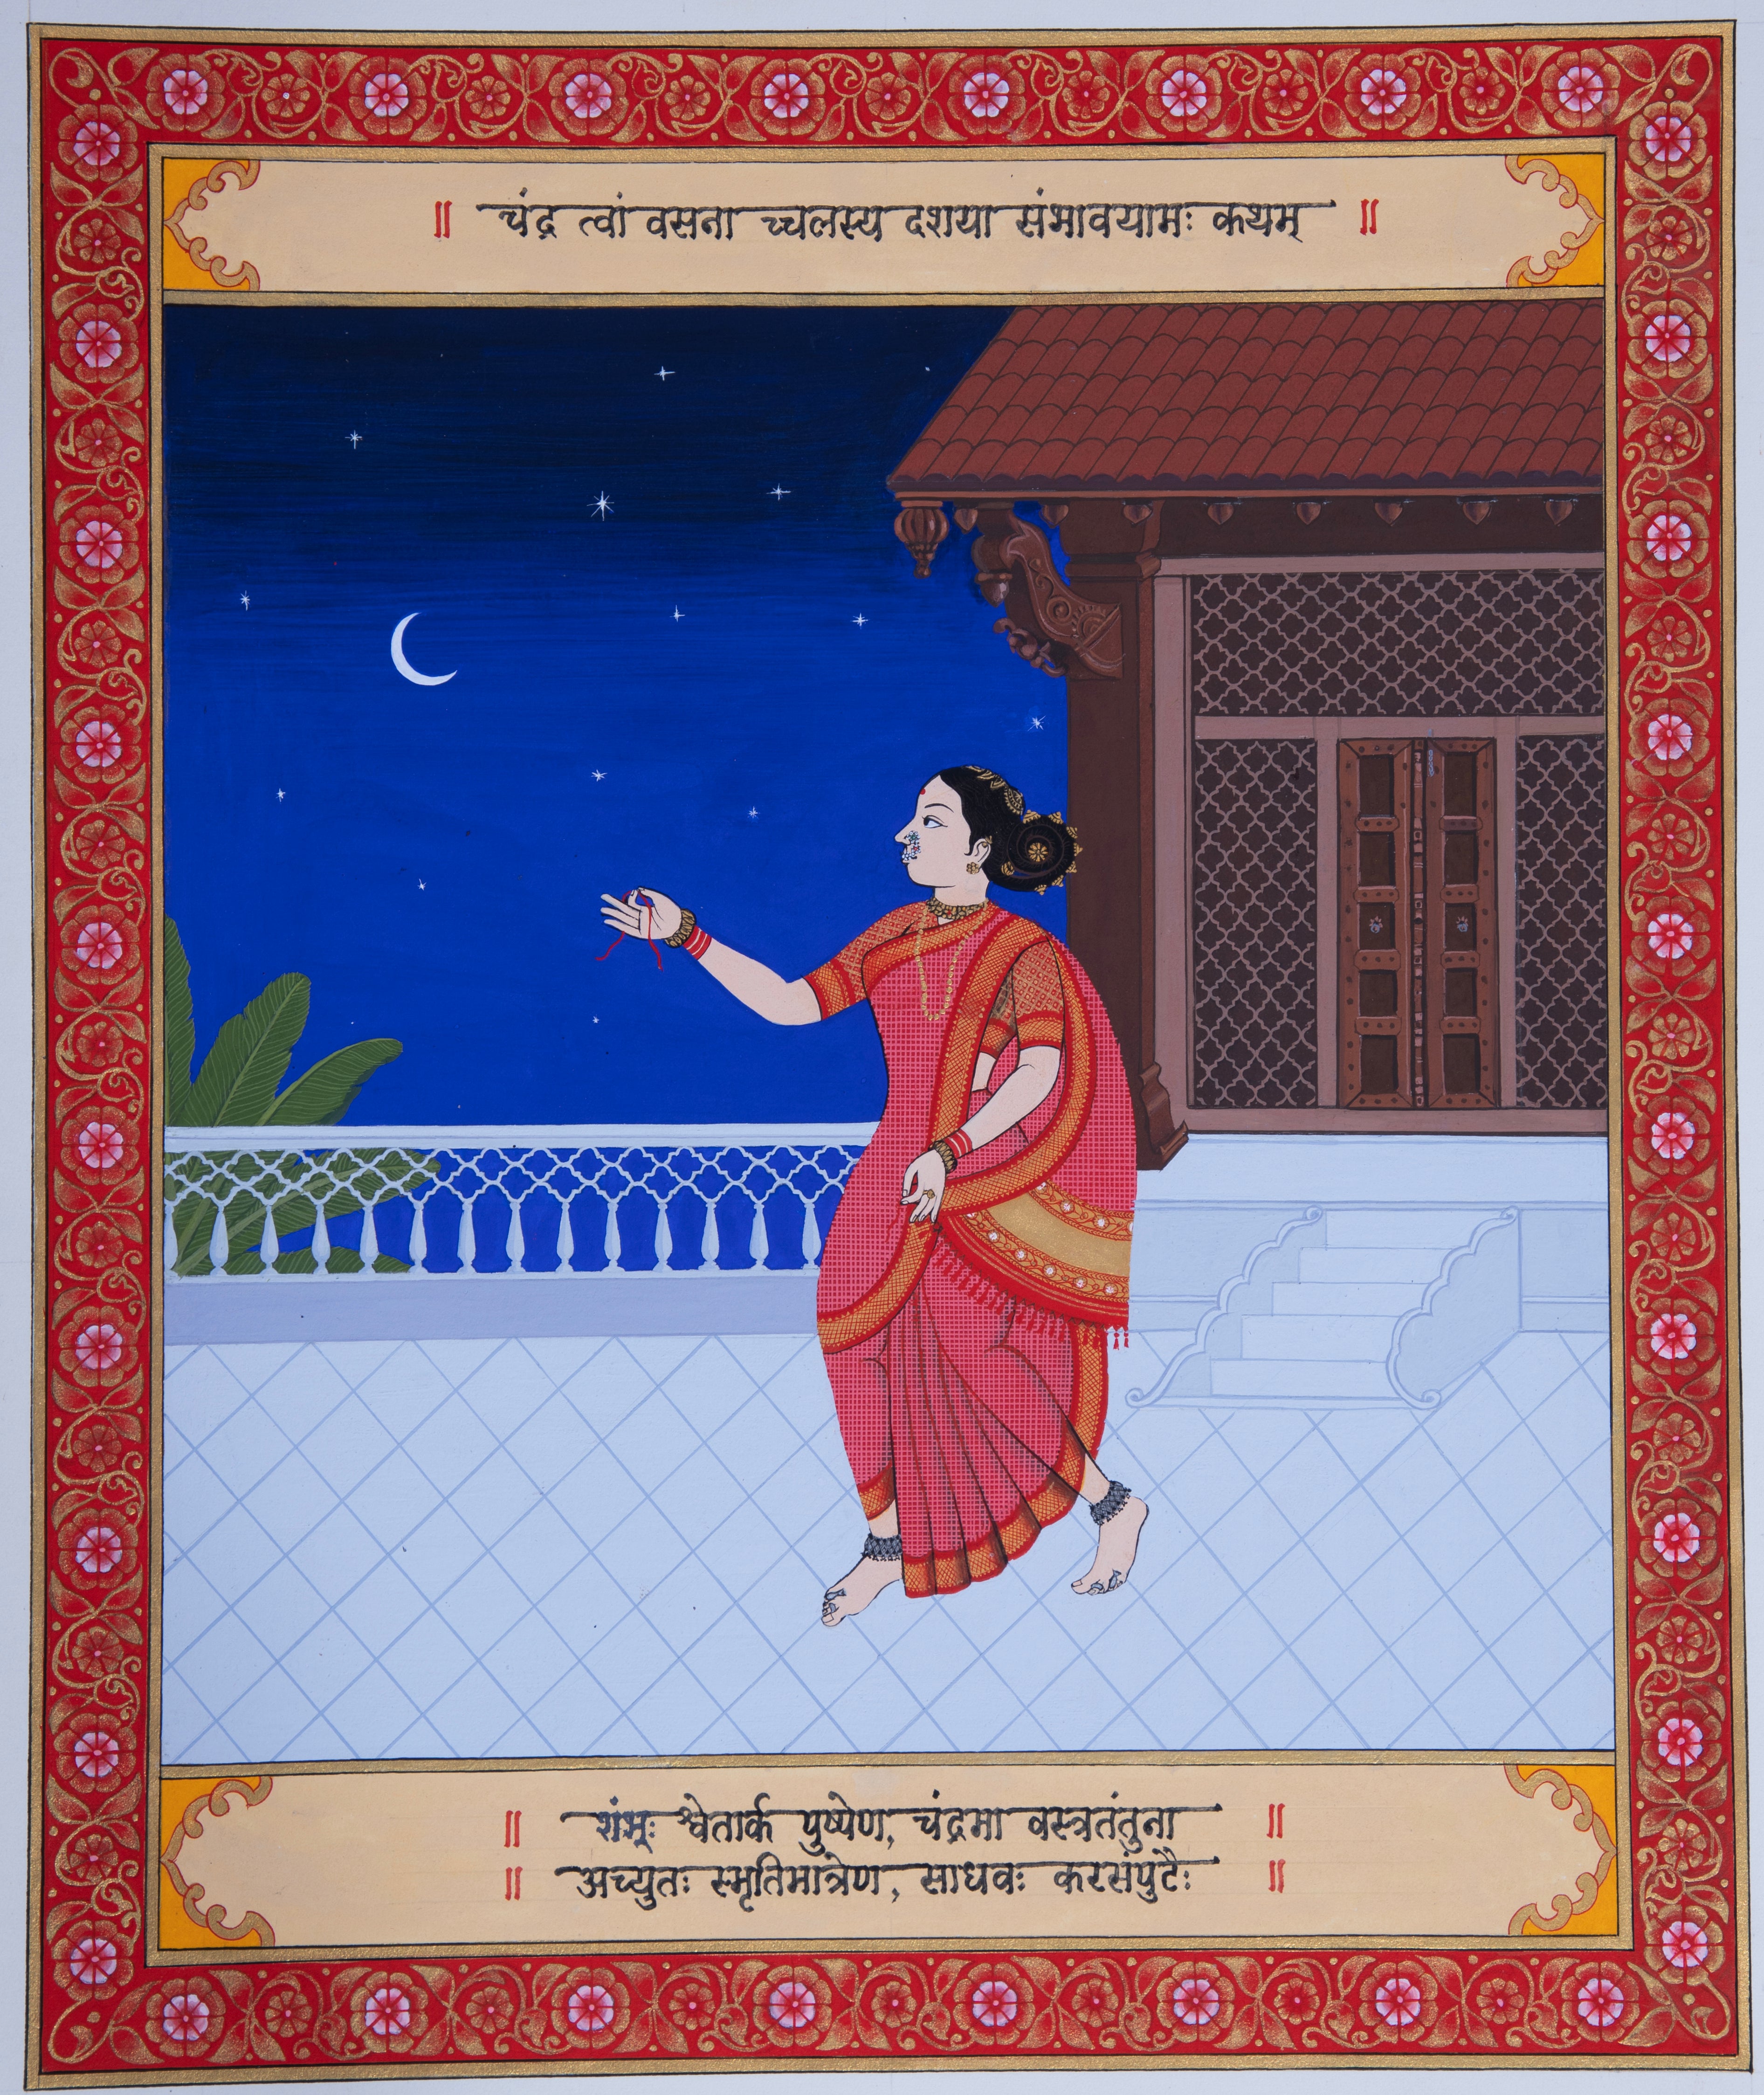 ॥ चंद्र त्वां वसना च्चलस्य दशया संभावयामः कथम् ॥
॥ शंभूः श्वेतार्क पुष्पेण, चंद्रमा वस्त्रतंतुना ॥
॥ अच्युतः स्मृतिमात्रेण, साधवः करसंपुटैः ॥